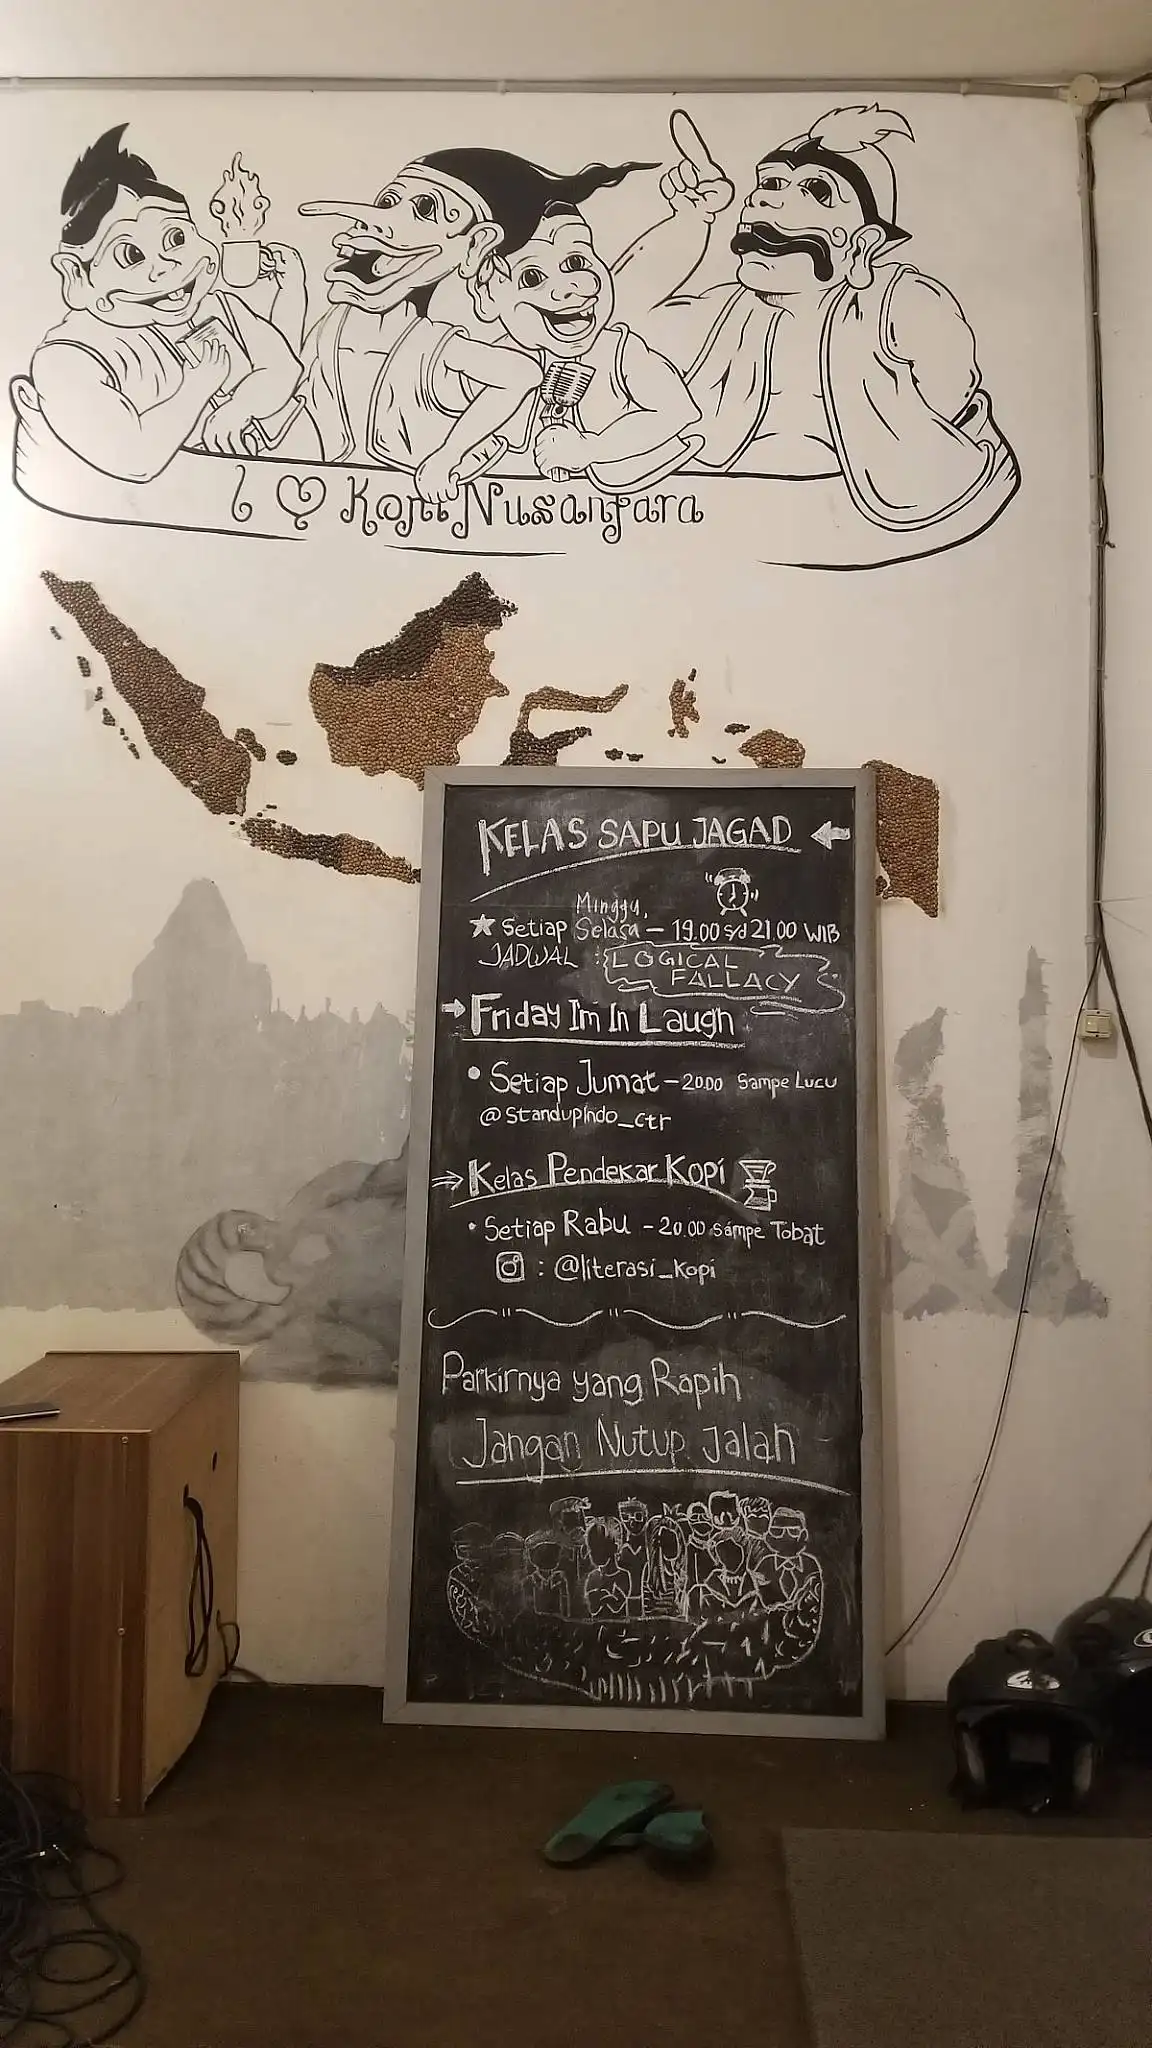 I ♡ Kopi Nusantara
KELAS SAPU JAGAD
Minggu,
Setiap Selasa - 19.00 s/d 21.00 WIB
JADWAL : LOGICAL
FALLACY
Friday Im In Laugh
Setiap Jumat - 20.00 Sampe Lucu
@StandupIndo_ctr
Kelas Pendekar Kopi
Setiap Rabu - 20.00 sampe Tobat
: @literasi_kopi
Parkirnya yang Rapih
Jangan Nutup Jalan